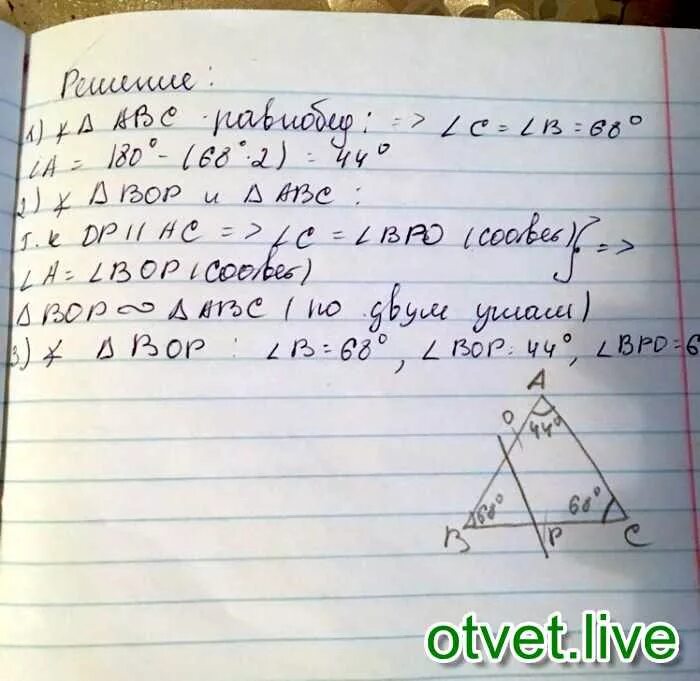 Решение:
1) ∡ Δ ABC - равнобед: => ∠C = ∠B = 68°
∠A = 180° - (68°·2) = 44°
2) ∡ Δ BOP и Δ ABC:
т.к OP || AC => ∠C = ∠BPO (соответ) } =>
∠A = ∠BOP (соответ)
Δ BOP ∾ Δ ABC (по двум углам)
3) ∡ Δ BOP: ∠B = 68°, ∠BOP = 44°, ∠BPO = 6
A
O
44°
68°
68°
B
P
C
otvet.live